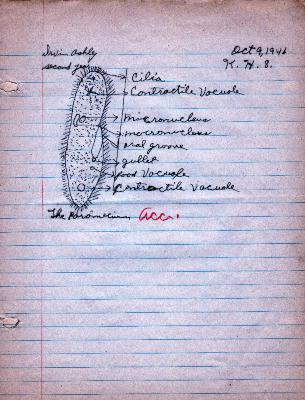 Irvin Ashly
Oct 9, 194
second year
K. H. S.
Cilia
Contractile Vacuole
micronucleus
macronucleus
oral groove
gullet
food Vacuole
Contractile Vacuole
The Paramecium
Acc.